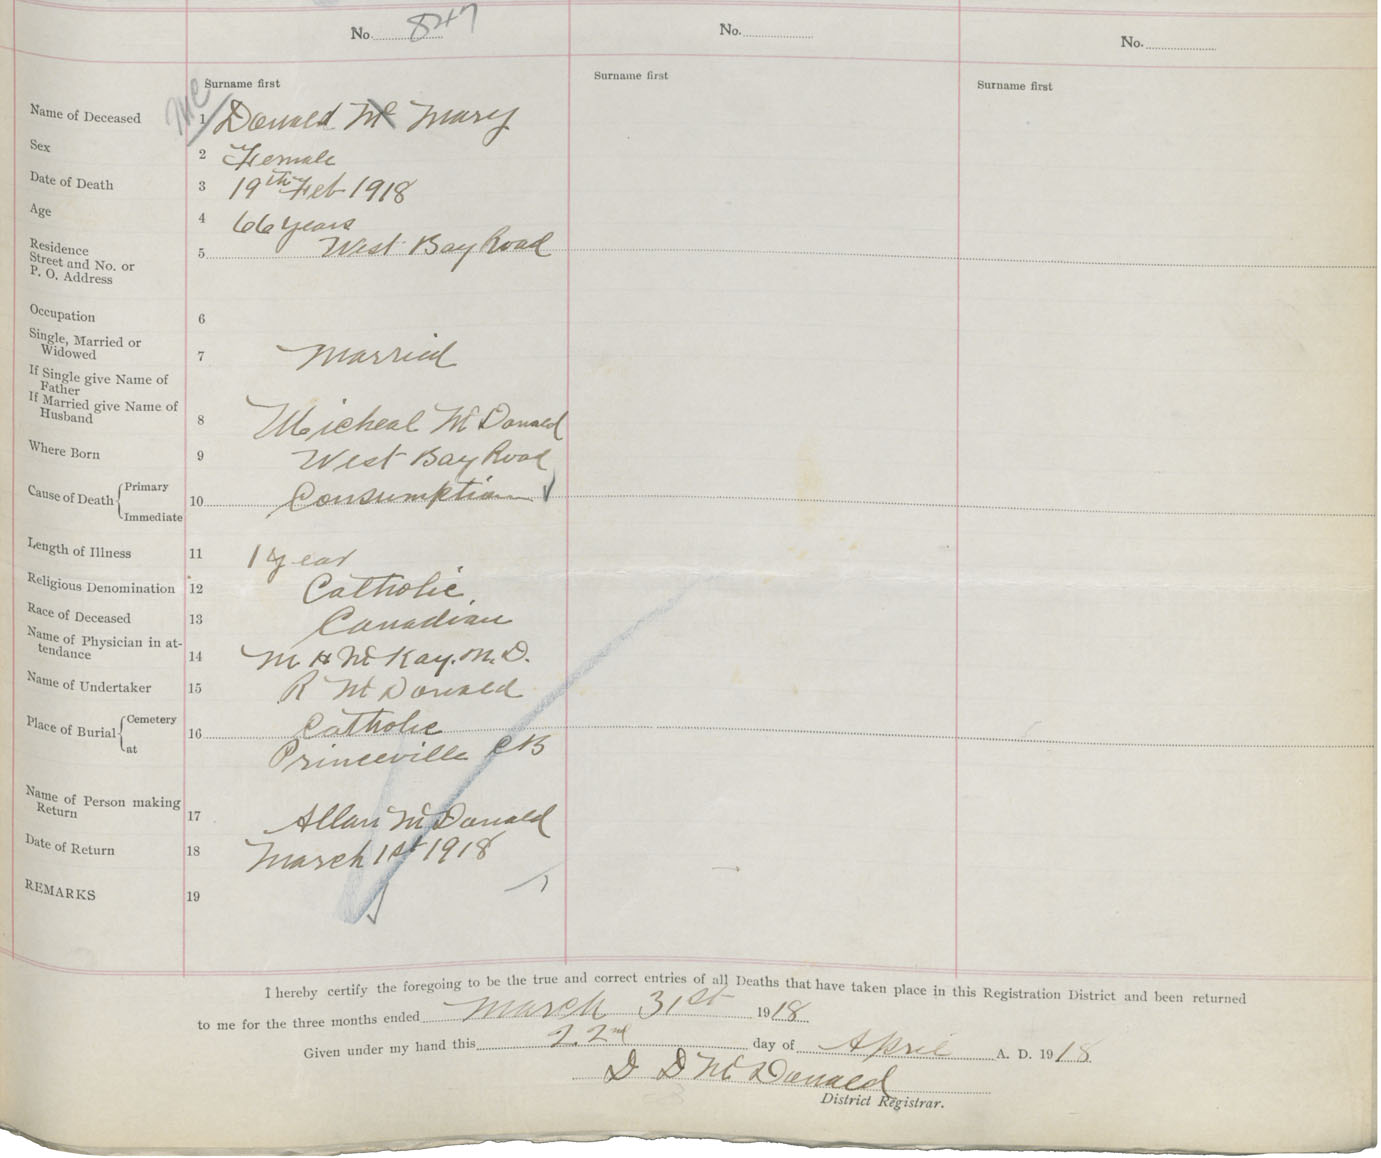 No. 847
No.
No.
Surname first
Surname first
Surname first
Mc
Name of Deceased 1 Donald Mc Mary
Sex 2 Female
Date of Death 3 19th Feb 1918
Age 4 66 years
Residence
Street and No. or
P. O. Address 5 West Bay Road
Occupation 6
Single, Married or
Widowed 7 Married
If Single give Name of
Father
If Married give Name of
Husband 8 Micheal McDonald
Where Born 9 West Bay Road
Cause of Death { Primary
Immediate 10 Consumption
Length of Illness 11 1 year
Religious Denomination 12 Catholic
Race of Deceased 13 Canadian
Name of Physician in at-
tendance 14 M H McKay. M. D.
Name of Undertaker 15 R McDonald
Place of Burial { Cemetery
at 16 Catholic
Princeville CB
Name of Person making
Return 17 Allan McDonald
Date of Return 18 March 1st 1918
REMARKS 19
I hereby certify the foregoing to be the true and correct entries of all Deaths that have taken place in this Registration District and been returned
to me for the three months ended March 31st 1918
Given under my hand this 22nd day of April A. D. 1918
D D McDonald
District Registrar.